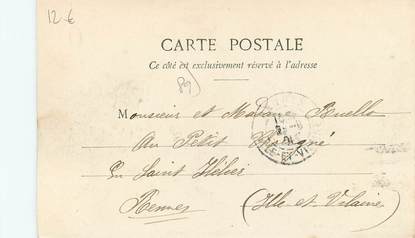 12 €
CARTE POSTALE
Ce côté est exclusivement réservé à l'adresse
89
Monsieur et Madame Ruello
Au Petit
En Saint Hélier
Rennes (Ille et Vilaine)
ILLE-ET-VI